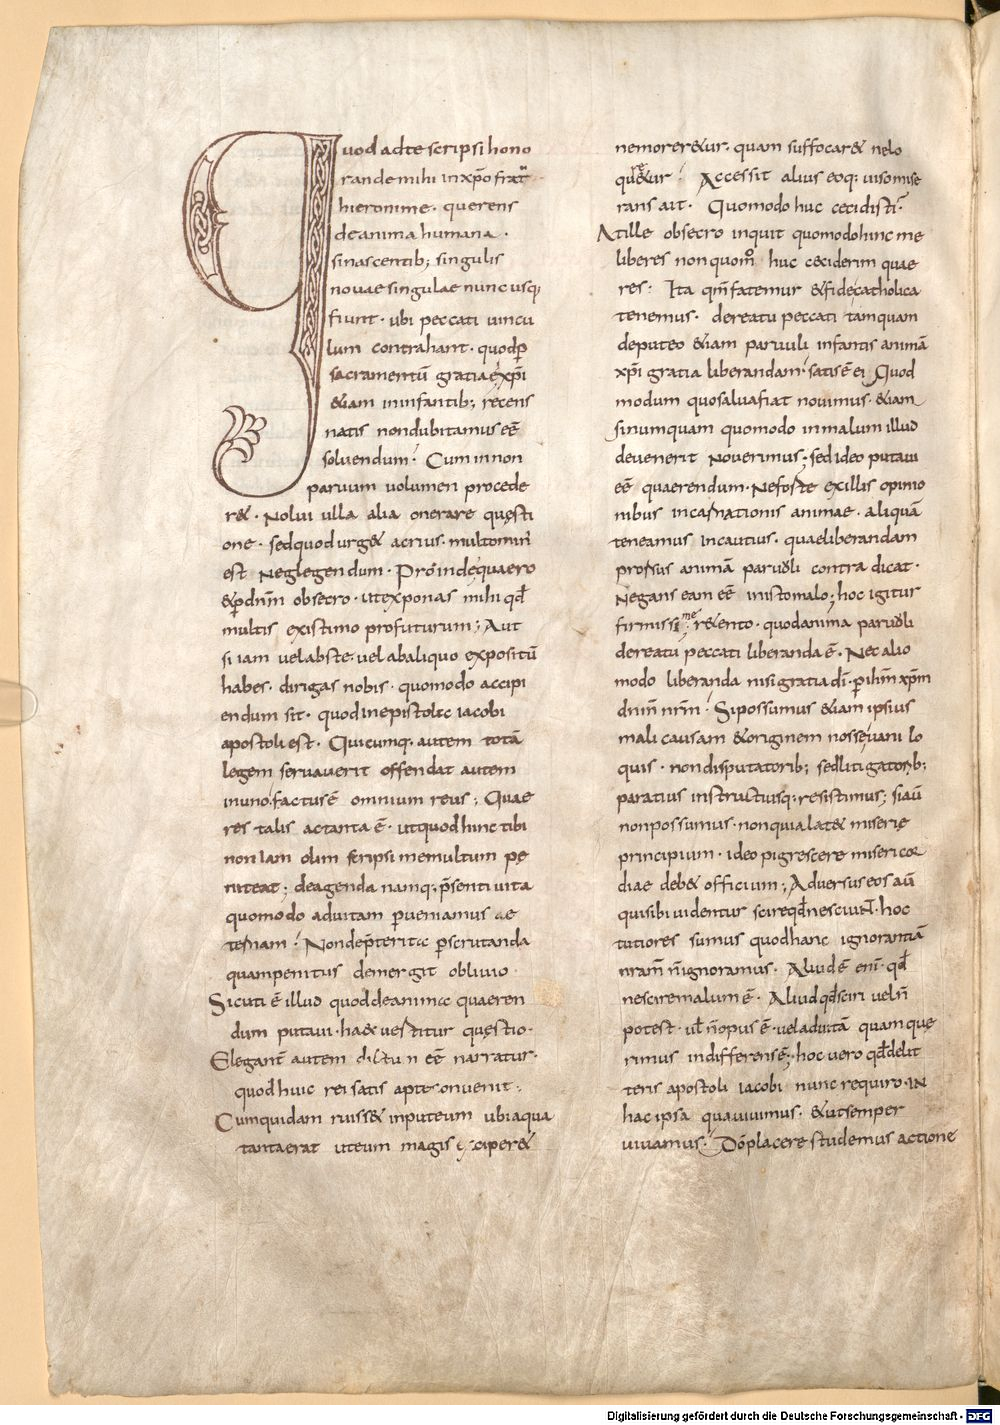 Quod ad te scripsi hono
rande mihi in xp̄o frat̄
hieronime · querens
de anima humana ·
si nascentib; singulis
novae singulae nunc usq;
fiunt · ubi peccati vincu
lum contrahant · quod p̄
sacramentū gratiae xp̄i
&iam in infantib; recens
natis non dubitamus eē
solvendum · Cum in non
parvum volumen procede
r& · Nolui ulla alia onerare quęsti
one · sed quod urg& acrius · multo min'
est neglegendum · Proinde quaero
& p̄ dnm̄ obsecro · ut exponas mihi qd̄
multis existimo profuturum; Aut
si iam vel abs te · vel ab aliquo expositū
habes · dirigas nobis · quomodo accipi
endum sit · quod in epistola iacobi
apostoli est · Quicumq, autem totā
legem servaverit offendat autem
in uno · factus ē omnium reus; Quae
res talis ac tanta ē · ut quod hinc tibi
non iam olim scripsi me multum pę
niteat; de agenda namq; p̄senti vita
quomodo ad vitam perveniamus ae
ternam · Non de p̄terita perscrutanda
quam penitus demergit oblivio ·
Sicuti ē illud quod de anima quaeren
dum putavi · ha& vestitur quęstio ·
Elegant̄ autem dictum eē narratur ·
quod huic rei satis apte convenit ·
Cum quidam ruiss& in puteum ubi aqua
tanta erat ut eum magis exciper&
ne morer&ur · quam suffocar& ne lo
quer&ur · Accessit alius eoq; viso mise
rans ait · Quomodo huc cecidisti ·
At ille obsecro inquit quomodo hinc me
liberes non quom̊ huc ceciderim quae
res · Ita qm̄ fatemur & fide catholica
tenemus · de reatu peccati tamquam
de puteo &iam parvuli infantis animā
xp̄i gratia liberandam · satis ē ei Quod
modum quo salva fiat novimus · &iam
si numquam quomodo in malum illud
devenerit noverimus; sed ideo putavi
eē quaerendum · Ne forte ex illis opinio
nibus incarnationis animae · aliquā
teneamus incautius · quae liberandam
prorsus animā parvuli contradicat ·
Negans eam eē in isto malo; hoc igitur
firmissime r&ento · quod anima parvuli
de reatu peccati liberanda ē · Nec alio
modo liberanda nisi gratia dī · p ihm̄ xpm̄
dnm̄ nrm̄ · Si possumus &iam ipsius
mali causam & originem nosse vani lo
quis · non disputatorib; sed litigatorib;
paratius instructiusq; resistimus; si aū
non possumus · non quia lat& miserię
principium · ideo pigrescere misericor
diae deb& officium; Adversus eos aū
qui sibi videntur scire qd̄ nesciunt · hoc
tutiores sumus quod hanc ignorantiā
nram̄ n̄ ignoramus · Aliud ē eni · qd̄
nescire malum ē · Aliud qd̄ sciri vel n̄
potest · vl̄ n̄ opus ē · vel ad vitā quam que
rimus indifferens ē; hoc vero qd̄ de lit
teris apostoli iacobi nunc requiro · in
hac ipsa qua vivimus · & ut semper
vivamus · Dō placere studemus actione
Digitalisierung gefördert durch die Deutsche Forschungsgemeinschaft - DFG